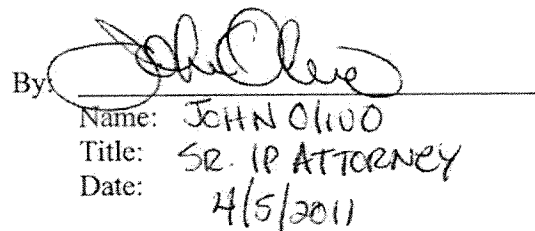 By: John Olivo
Name: JOHN Olivo
Title: SR. IP ATTORNEY
Date: 4/5/2011